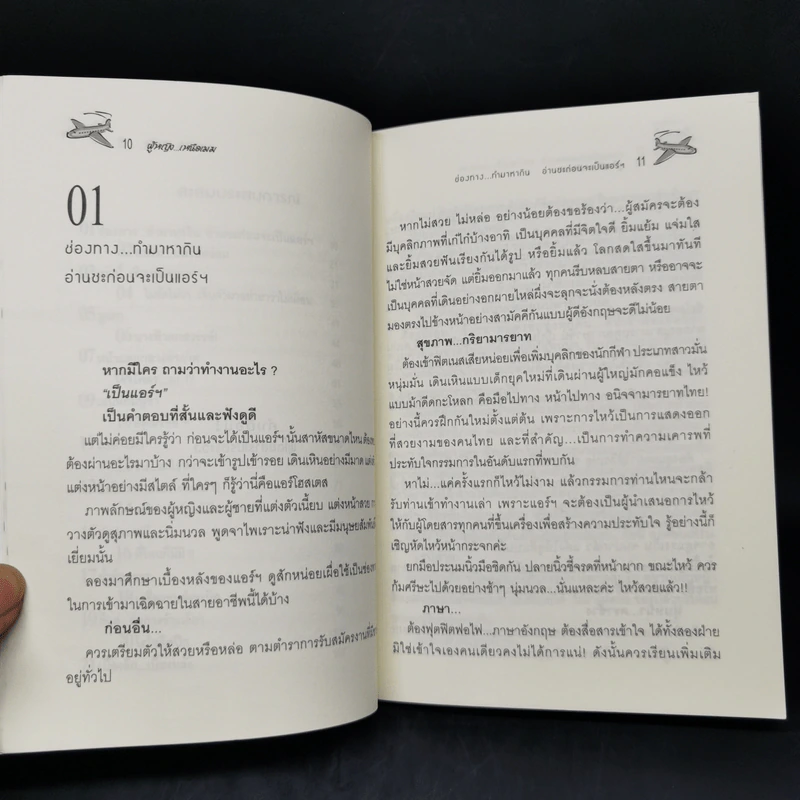 10 ผู้หญิง...เหนือเมฆ
01
ช่องทาง...ทำมาหากิน
อ่านซะก่อนจะเป็นแอร์ฯ
หากมีใคร ถามว่าทำงานอะไร ?
“เป็นแอร์ฯ”
เป็นคำตอบที่สั้นและฟังดูดี
แต่ไม่ค่อยมีใครรู้ว่า ก่อนจะได้เป็นแอร์ฯ นั้นสาหัสขนาดไหน ต้อง
ต้องผ่านอะไรมาบ้าง กว่าจะเข้ารูปเข้ารอย เดินเหินอย่างมีมาด
แต่งหน้าอย่างมีสไตล์ ที่ใครๆ ก็รู้ว่านี่คือแอร์โฮสเตส
ภาพลักษณ์ของผู้หญิงและผู้ชายที่แต่งตัวเนี้ยบ แต่งหน้าสวย
วางตัวดูสุภาพและนิ่มนวล พูดจาไพเราะน่าฟังและมีมนุษยสัมพันธ์
เยี่ยมนั้น
ลองมาศึกษาเบื้องหลังของแอร์ฯ ดูสักหน่อยเผื่อใช้เป็นช่อง
ในการเข้ามาเฉิดฉายในสายอาชีพนี้ได้บ้าง
ก่อนอื่น...
ควรเตรียมตัวให้สวยหรือหล่อ ตามตำราการรับสมัครงานที่มี
อยู่ทั่วไป
ช่องทาง...ทำมาหากิน อ่านซะก่อนจะเป็นแอร์ฯ 11
หากไม่สวย ไม่หล่อ อย่างน้อยต้องขอร้องว่า...ผู้สมัครจะต้อง
มีบุคลิกภาพที่เก๋ไก๋บ้างอาทิ เป็นบุคคลที่มีจิตใจดี ยิ้มแย้ม แจ่มใส
และยิ้มสวยฟันเรียงกันได้รูป หรือยิ้มแล้ว โลกสดใสขึ้นมาทันที
ไม่ใช่หน้าสวยจัด แต่ยิ้มออกมาแล้ว ทุกคนรีบหลบสายตา หรืออาจจะ
เป็นบุคคลที่เดินอย่างอกผายไหล่ผึ่งจะลุกจะนั่งต้องหลังตรง สายตา
มองตรงไปข้างหน้าอย่างสามัคคีกันแบบผู้ดีอังกฤษจะดีไม่น้อย
สุขภาพ...กริยามารยาท
ต้องเข้าฟิตเนสเสียหน่อยเพื่อเพิ่มบุคลิกของนักกีฬา ประเภทสาวมั่น
หนุ่มมั่น เดินเหินแบบเด็กยุคใหม่ที่เดินผ่านผู้ใหญ่มักคอแข็ง ไหว้
แบบม้าดีดกะโหลก คือมือไปทาง หน้าไปทาง อนิจจามารยาทไทย!
อย่างนี้ควรฝึกกันใหม่ตั้งแต่ต้น เพราะการไหว้เป็นการแสดงออก
ที่สวยงามของคนไทย และที่สำคัญ...เป็นการทำความเคารพที่
ประทับใจกรรมการในอันดับแรกที่พบกัน
หาไม่...แค่ครั้งแรกก็ไหว้ไม่งาม แล้วกรรมการท่านไหนจะกล้า
รับท่านเข้าทำงานเล่า เพราะแอร์ฯ จะต้องเป็นผู้นำเสนอการไหว้
ให้กับผู้โดยสารทุกคนที่ขึ้นเครื่องเพื่อสร้างความประทับใจ รู้อย่างนี้ก็
เชิญหัดไหว้หน้ากระจกค่ะ
ยกมือประนมนิ้วมือชิดกัน ปลายนิ้วชี้จรดที่หน้าผาก ขณะไหว้ ควร
ก้มศรีษะไปด้วยอย่างช้าๆ นุ่มนวล...นั่นแหละค่ะ ไหว้สวยแล้ว!!
ภาษา...
ต้องฟุตฟิตฟอไฟ...ภาษาอังกฤษ ต้องสื่อสารเข้าใจ ได้ทั้งสองฝ่าย
มิใช่เข้าใจเองคนเดียวคงไม่ได้การแน่! ดังนั้นควรเรียนเพิ่มเติม